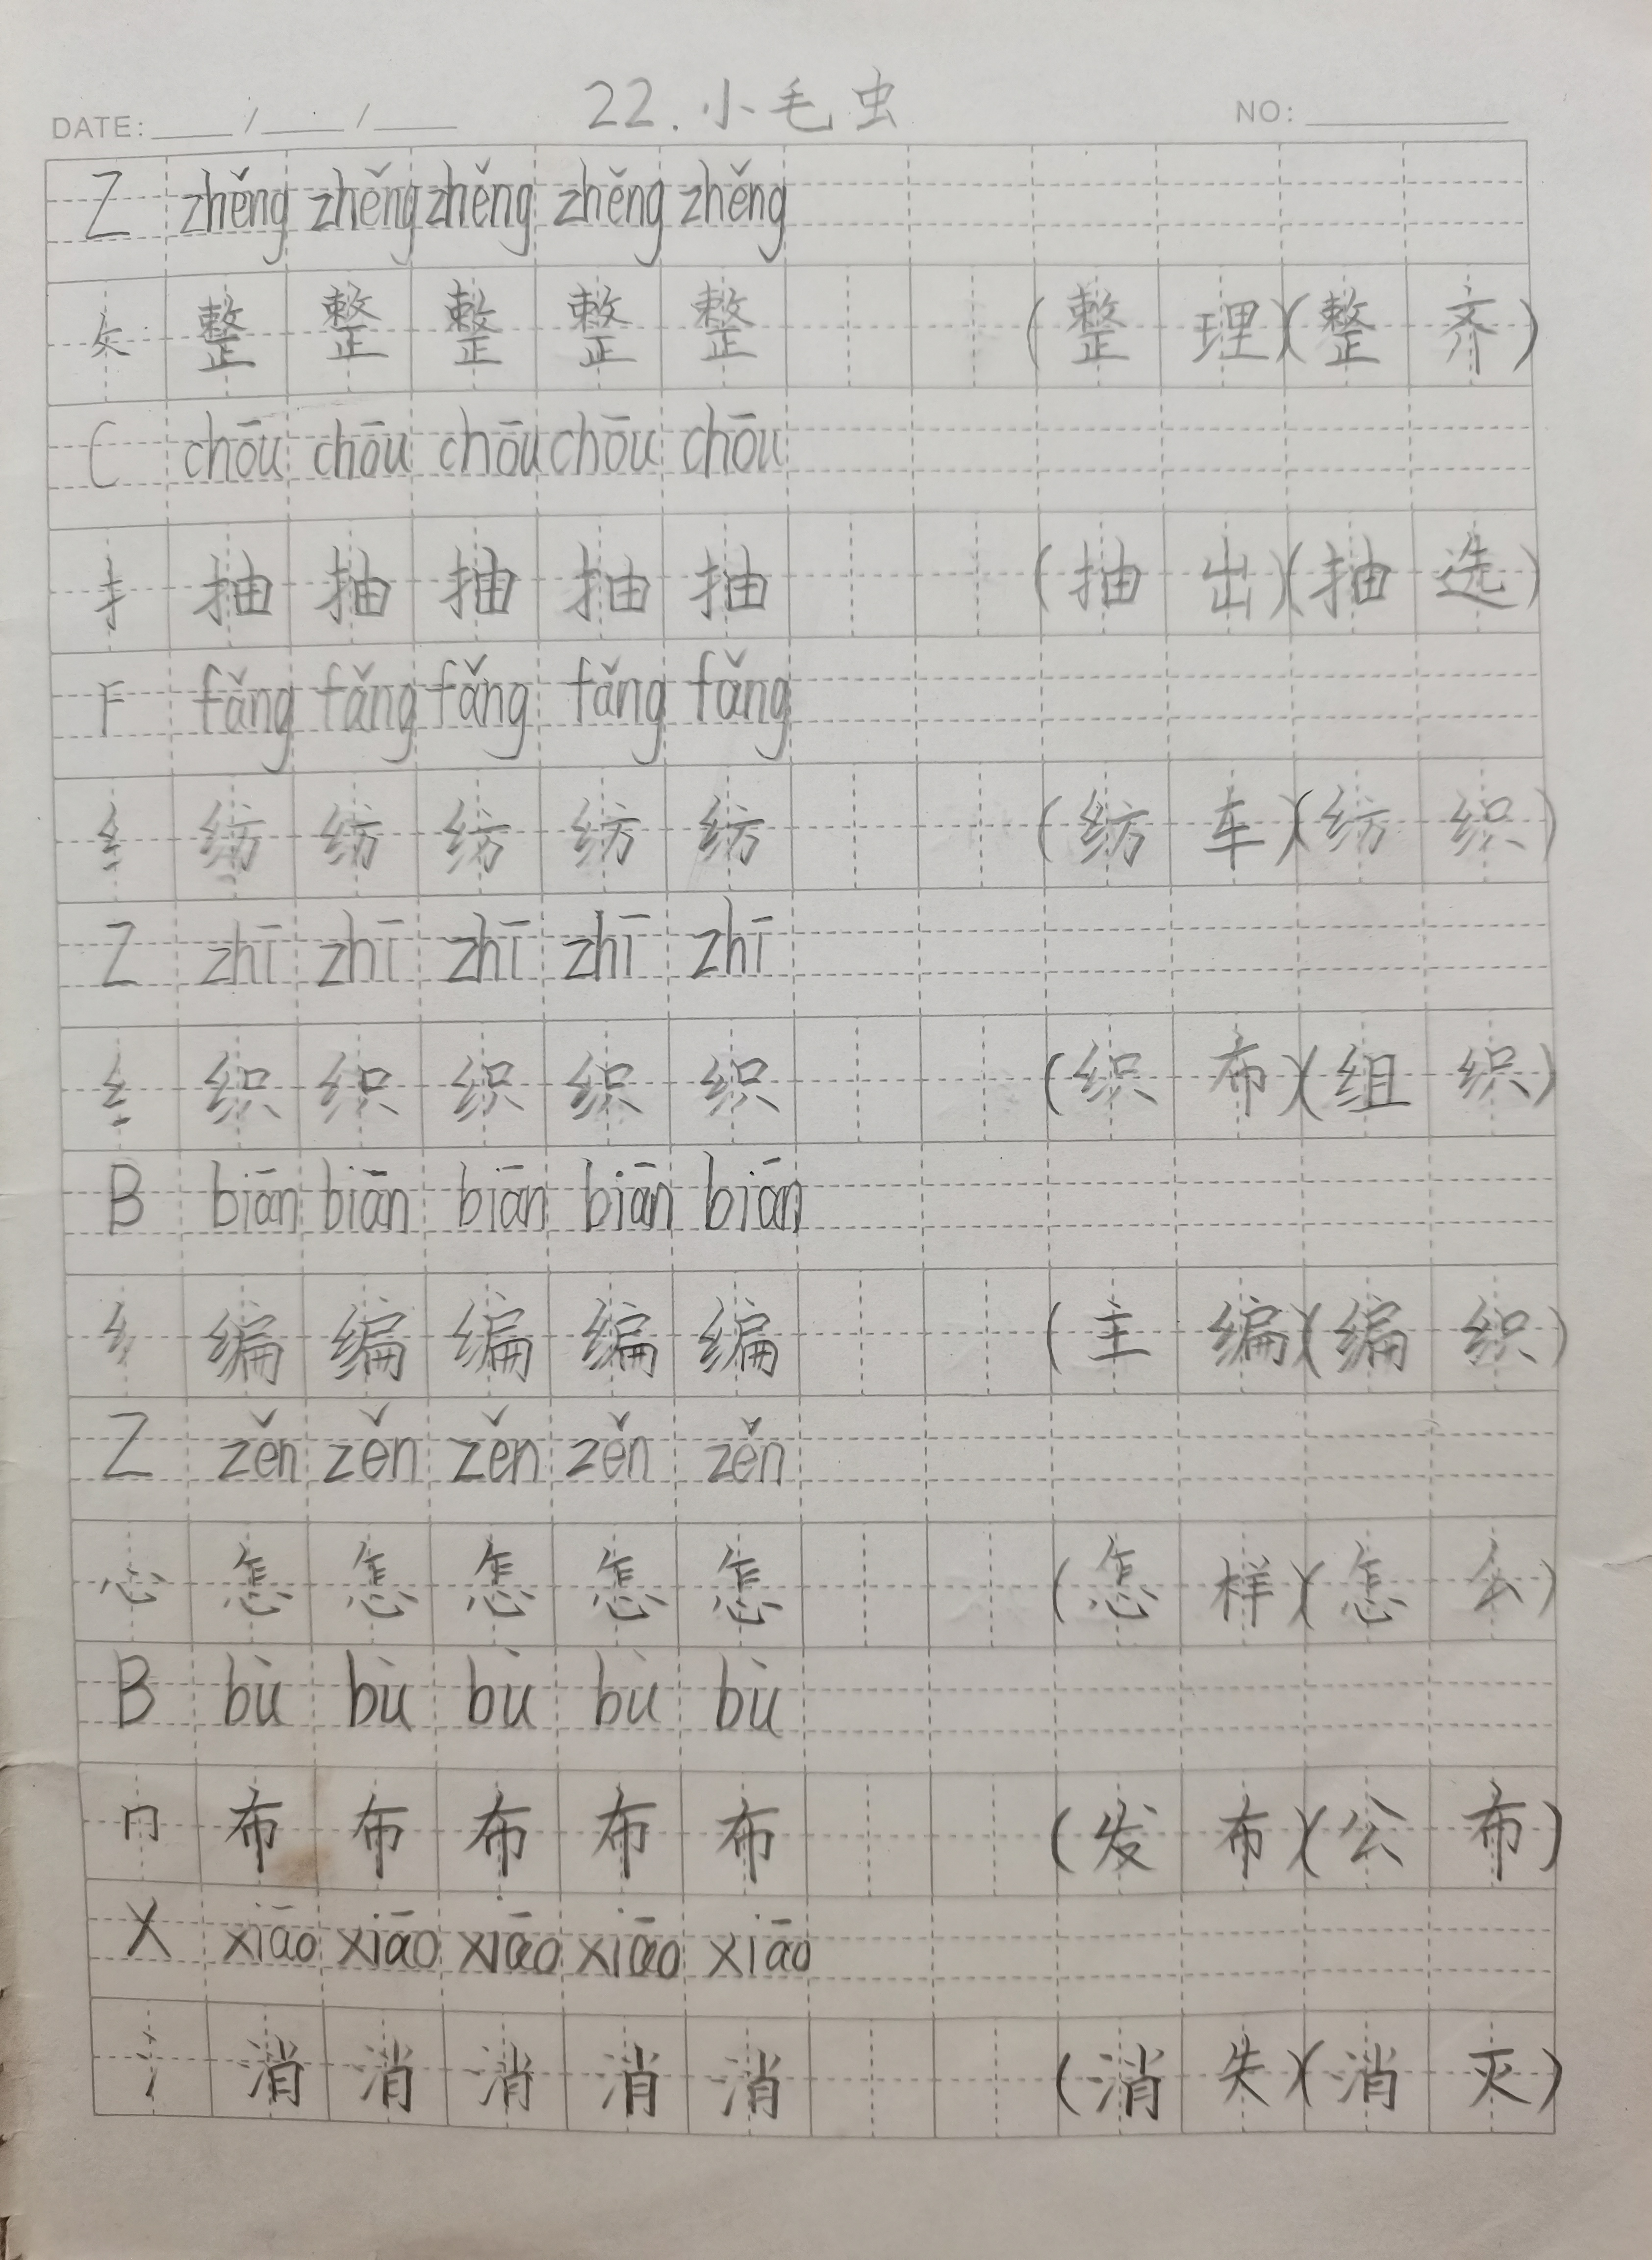 22.小毛虫
DATE: / / NO:
Z zhěng zhěng zhěng zhěng zhěng
攵 整 整 整 整 整 (整理)(整齐)
C chōu chōu chōu chōu chōu
扌 抽 抽 抽 抽 抽 (抽出)(抽选)
F fǎng fǎng fǎng fǎng fǎng
纟 纺 纺 纺 纺 纺 (纺车)(纺织)
Z zhī zhī zhī zhī zhī
纟 织 织 织 织 织 (织布)(组织)
B biān biān biān biān biān
纟 编 编 编 编 编 (主编)(编织)
Z zěn zěn zěn zěn zěn
心 怎 怎 怎 怎 怎 (怎样)(怎么)
B bù bù bù bù bù
冂 布 布 布 布 布 (发布)(公布)
X xiāo xiāo xiāo xiāo xiāo
氵 消 消 消 消 消 (消失)(消灭)